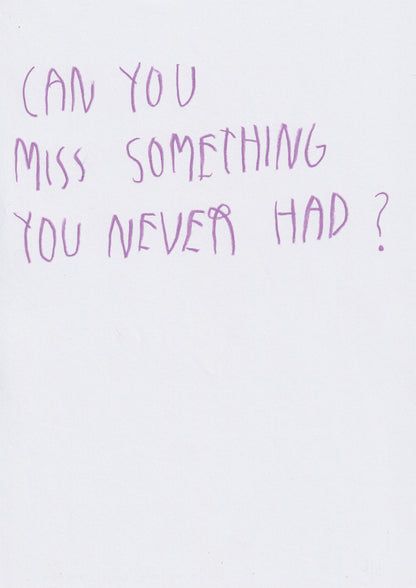 CAN YOU
MISS SOMETHING
YOU NEVER HAD ?